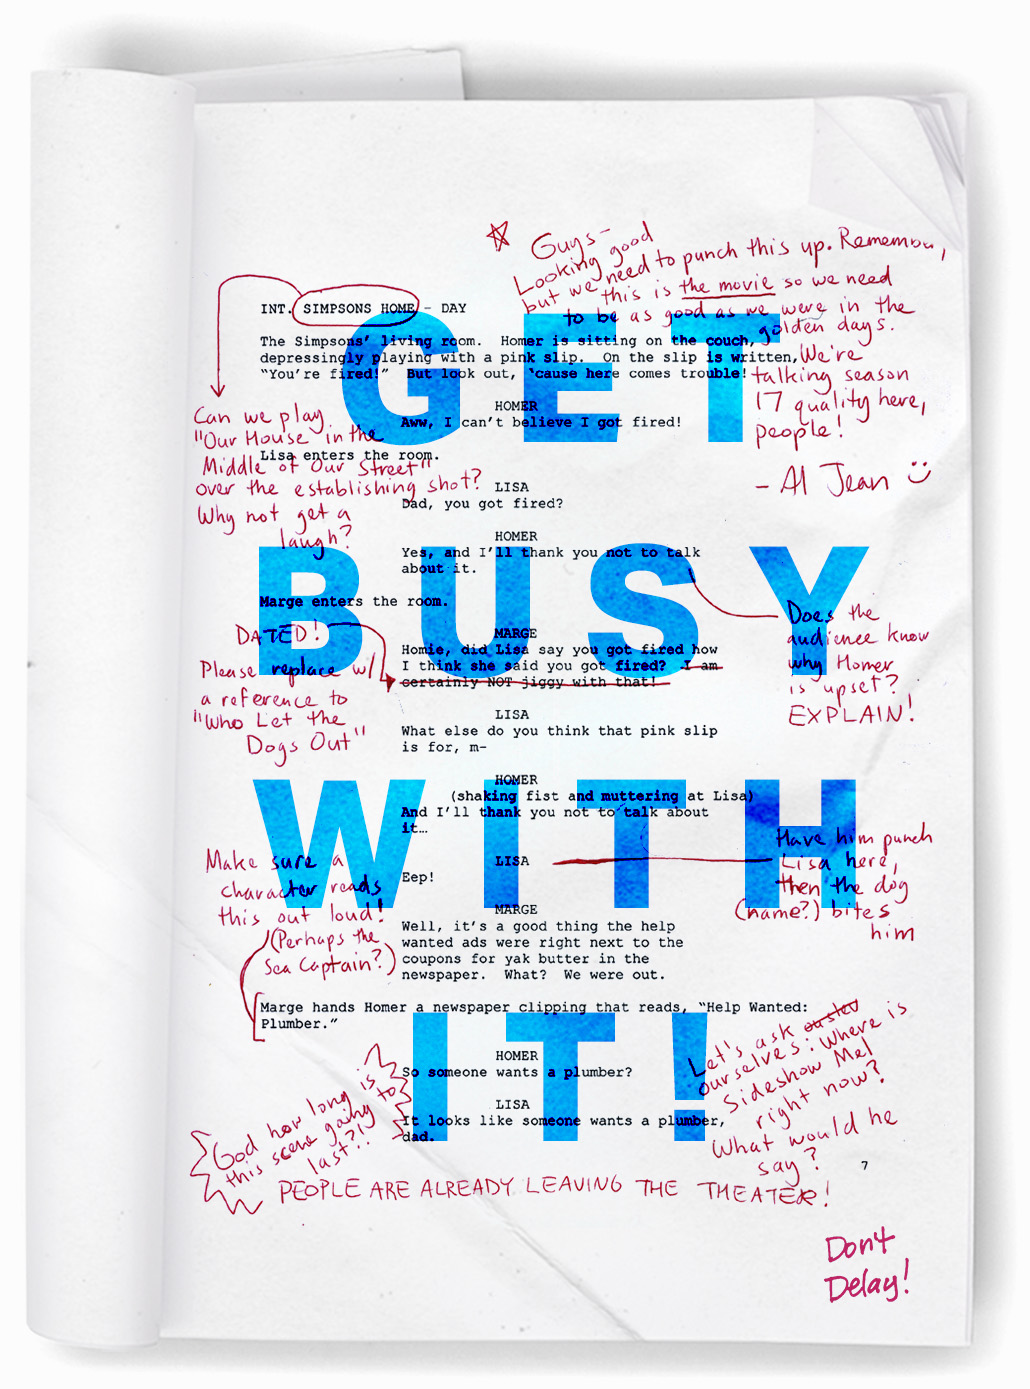 ☆ Guys-
Looking good
but we need to punch this up. Remember,
this is the movie so we need
to be as good as we were in the
golden days.
We're
talking season
17 quality here,
people!
- Al Jean
INT. SIMPSONS HOME - DAY
The Simpsons' living room. Homer is sitting on the couch,
depressingly playing with a pink slip. On the slip is written,
"You're fired!" But look out, 'cause here comes trouble!
HOMER
Aww, I can't believe I got fired!
Can we play
"Our House in the
Middle of Our Street"
over the establishing shot?
Why not get a
laugh?
Lisa enters the room.
LISA
Dad, you got fired?
HOMER
Yes, and I'll thank you not to talk
about it.
Does the
audience know
why Homer
is upset?
EXPLAIN!
Marge enters the room.
MARGE
Homie, did Lisa say you got fired how
I think she said you got fired? I am
certainly NOT jiggy with that!
DATED!
Please replace w/
a reference to
"Who Let the
Dogs Out"
LISA
What else do you think that pink slip
is for, m-
HOMER
(shaking fist and muttering at Lisa)
And I'll thank you not to talk about
it…
LISA
Eep!
Have him punch
Lisa here,
then the dog
(name?) bites
him
MARGE
Well, it's a good thing the help
wanted ads were right next to the
coupons for yak butter in the
newspaper. What? We were out.
Make sure a
character reads
this out loud!
(Perhaps the
Sea Captain?)
Marge hands Homer a newspaper clipping that reads, "Help Wanted:
Plumber."
HOMER
So someone wants a plumber?
LISA
It looks like someone wants a plumber,
dad.
Let's ask
ourselves: Where is
Sideshow Mel
right now?
What would he
say?
God how long is
this scene going to
last?!
PEOPLE ARE ALREADY LEAVING THE THEATER!
7
GET
BUSY
WITH
IT!
Don't
Delay!